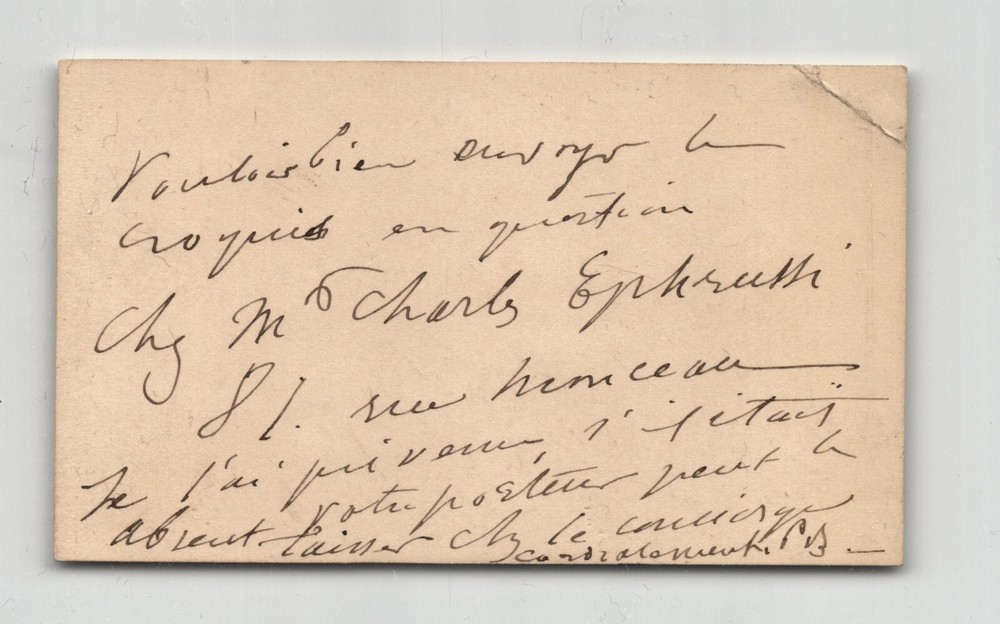 Vouloir bien envoyer le
croquis en question
Chez Mr Charles Ephrussi
81. rue Monceau
Je l'ai prévenu, s'il était
absent votre porteur peut le
laisser chez le concierge
cordialement. PB